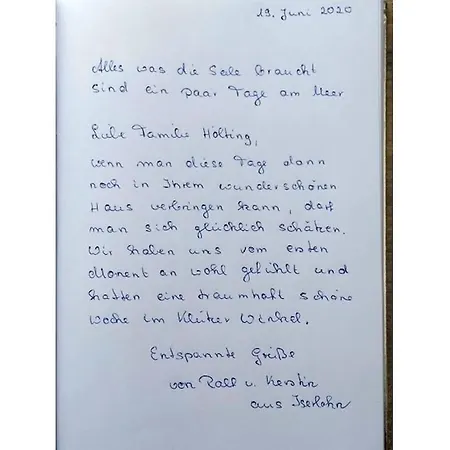 19. Juni 2020
Alles was die Seele braucht
sind ein paar Tage am Meer
Liebe Familie Hölting,
wenn man diese Tage dann
noch in Ihrem wunderschönen
Haus verbringen kann, darf
man sich glücklich schätzen.
Wir haben uns vom ersten
Moment an wohl gefühlt und
hatten eine traumhaft schöne
Woche im Klützer Winkel.
Entspannte Grüße
von Ralf u. Kerstin
aus Iserlohn